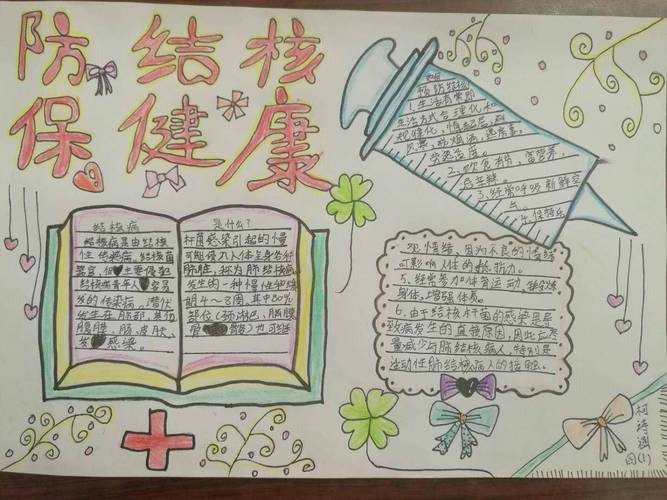 防结核
保健康
结核病
结核病是由结核
性传染病,结核菌
器官,但主要侵犯
结核病青年人容易
发的传染病,潜伏
发生在肺部,其他
腹膜、肠、皮肤、
发感染。
是什么?
杆菌感染引起的慢
可能侵入人体全身各种
肺脏,称为肺结核病。
发生的一种慢性和缓
期4~8周,其中80%
部位(颈淋巴、脑膜
骨骼)也可继
预防
1.生活有常即
生活方式合理化和
规律化,情
度。
2.饮食有节,富营养,
3.经常呼吸新鲜空
气。
4.保持乐
观情绪,因为不良的情绪
可影响人体的抵抗力。
5.经常参加体育运动,锻炼
身体,增强体质。
6.由于结核杆菌的感染是导
致病发生的直接原因,因此应尽
量减少与肺结核病人,特别是
活动性肺结核病人的接触。